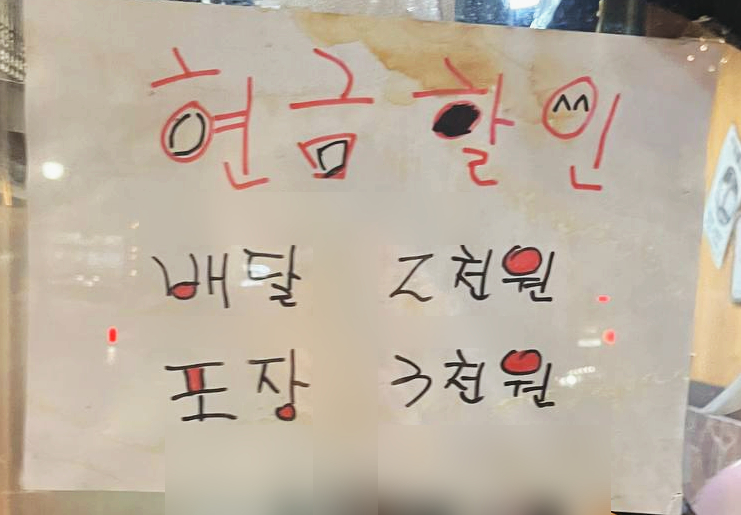 현금할인
배달 2천원
포장 3천원